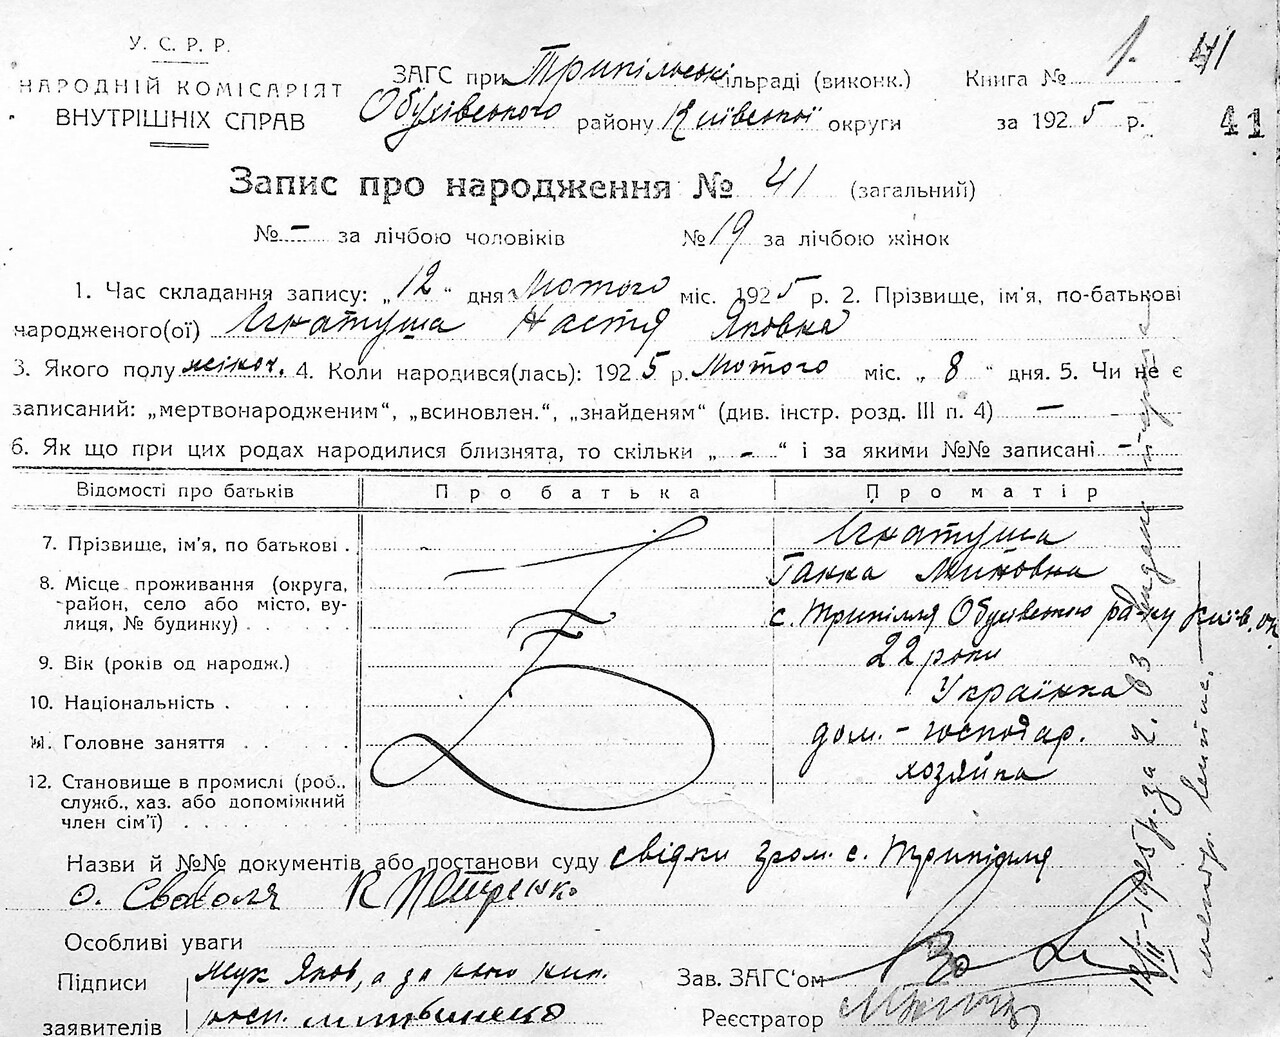 У. С. Р. Р.
НАРОДНІЙ КОМІСАРІЯТ
ВНУТРІШНІХ СПРАВ
ЗАГС при Трипільські сільраді (виконк.)
Обухівського району Київської округи
Книга № 1. 41
за 1925 р.
41
Запис про народження № 41 (загальний)
№ – за лічбою чоловіків № 19 за лічбою жінок
1. Час складання запису: „12“ дня Лютого міс. 1925 р. 2. Прізвище, ім'я, по-батькові
народженого(ої) Ігнатуша Настя Яковна
3. Якого полу жіноч. 4. Коли народився(лась): 1925 р. Лютого міс. „8“ дня. 5. Чи не є
записаний: „мертвонародженим“, „всиновлен.“, „знайденям“ (див. інстр. розд. III п. 4) —
6. Як що при цих родах народилися близнята, то скільки „-“ і за якими №№ записані –
Відомості про батьків Про батька Про матір
7. Прізвище, ім'я, по батькові . Ігнатуша
Ганка
8. Місце проживання (округа,
район, село або місто, ву-
лиця, № будинку) . . . . с. Трипілля Обухівського ра-ну Київ. ок.
9. Вік (років од народж.) 22 роки
10. Національність . . . . Українка
11. Головне заняття . . . . дом. – господар.
12. Становище в промислі (роб.,
служб., хаз. або допоміжний
член сім'ї) . . . . . . . хозяйка
Назви й №№ документів або постанови суду свідки гром. с. Трипілля
О. Сваволя К Петренко
Особливі уваги
Підписи
заявителів
Муж Яков, а за його
Зав. ЗАГС'ом
Реєстратор
1925 р. за № 83